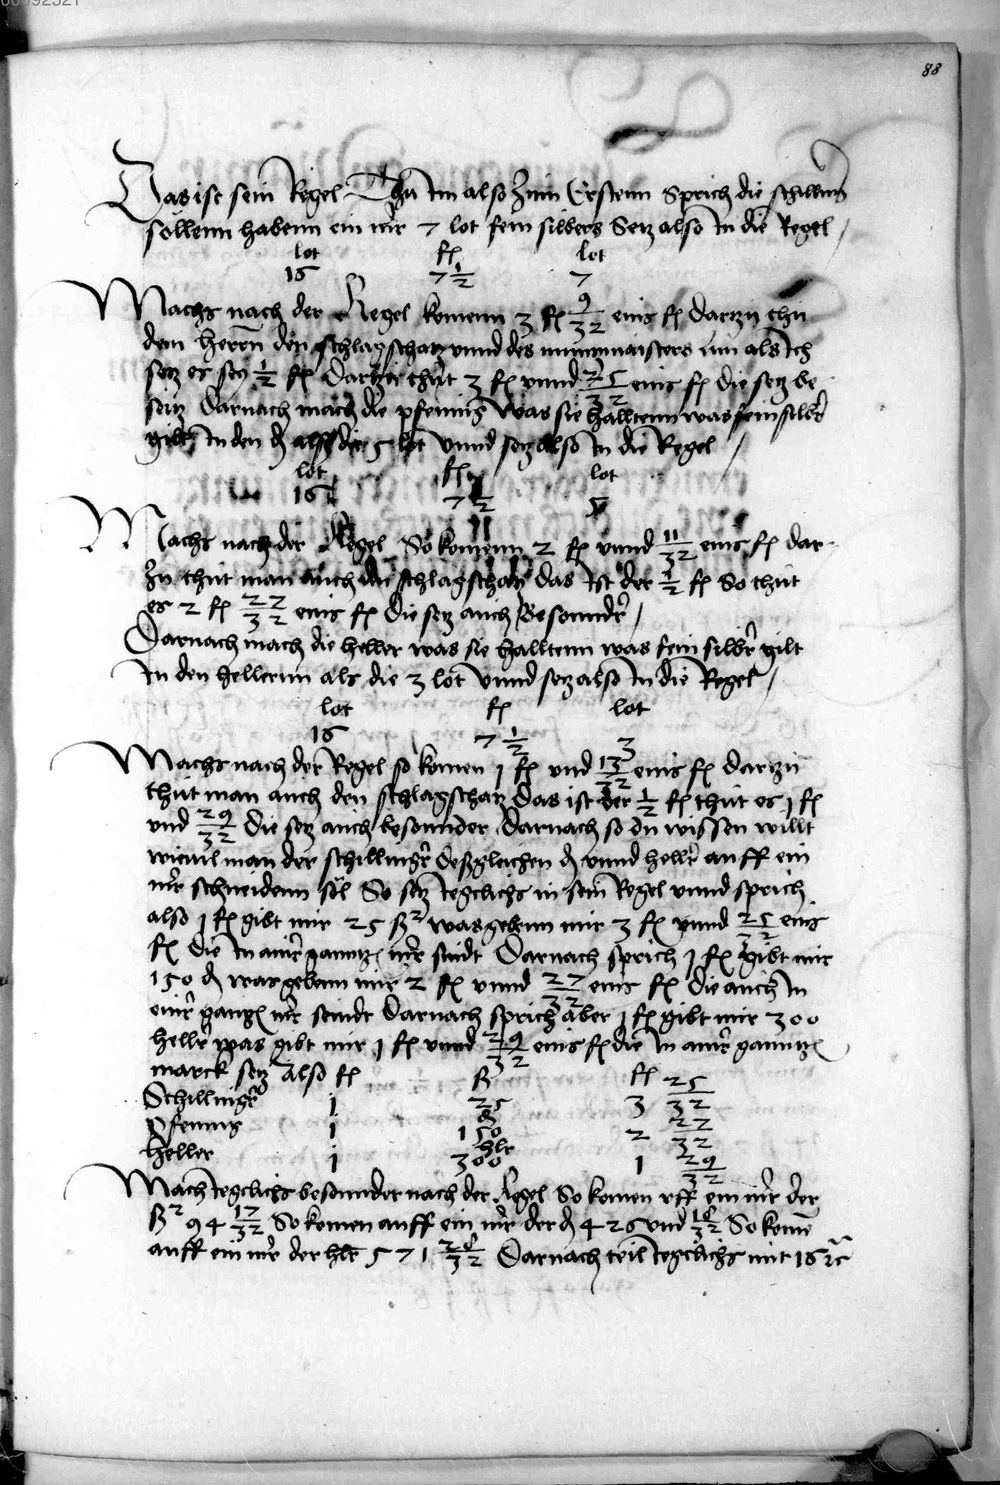 00092521
88
Das ist sein Regel Thu Im also Zum Ersten Sprich die schilling
söllenn habenn ein mr 7 lot fein silbers Setz also In die Regel
lot fl lot
16 7 1/2 7
Machs nach der Regel komenn 3 fl 9/32 eins fl Dartzu thu
dem herrn den schlagschatz vnnd des muntzmaisters lun als Ich
setz es sey 1/2 fl Dartzu thut 3 fl vnnd 25/32 eins fl die setz be
seitz Darnach mach die pfennig Was sie halltenn was fein silbr
gilt In den ₰ als die 5 lot Vnnd setz also In die Regel
lot fl lot
16 7 1/2 5
Machs nach der Regel So komenn 2 fl vnnd 11/32 eins fl dar
Zu thut man auch den schlagschatz das ist der 1/2 fl So thut
es 2 fl 27/32 eins fl Die setz auch Besonnder
Darnach mach die heller was sie halltenn was fein silbr gilt
In den hellernn als die 3 lot Vnnd setz also In die Regel
lot fl lot
16 7 1/2 3
Machs nach der Regel so komen j fl vnd 13/32 eins fl Dartzu
thut man auch den schlagschatz Das ist der 1/2 fl thut es j fl
vnd 29/32 die setz auch besonnder Darnach so du wissen willt
wieuil man der schillinger deßgleichen ₰ vnnd hellr auff ein
mr schneidenn söl So setz Iegclichs in sein Regel vnnd sprich
also j fl gibt mir 25 ß was gebnn mir 3 fl vnnd 25/32 eins
fl die In ainr ganntzn mr sindt Darnach sprich j fl gibt mir
150 ₰ was gebenn mir 2 fl vnnd 27/32 eins fl die auch In
einr gantzn mr seindt Darnach sprich aber j fl gibt mir 300
hellr was gibt mir j fl vnnd 29/32 eins fl die In ainr ganntzn
marck setz also fl ß fl
Schillingr 1 25 3 25/32
₰
Pfennig 1 150 2 27/32
hlr
heller 1 300 1 29/32
Mach Iegclichs besonnder nach der Regel So komen vff ein mr der
ß 94 17/32 So komen auff ein mr der ₰ 426 vnd 18/32 So komē
auff ein mr der hlr 571 28/32 Darnach teil Iegclichs mit 16 ꝛc